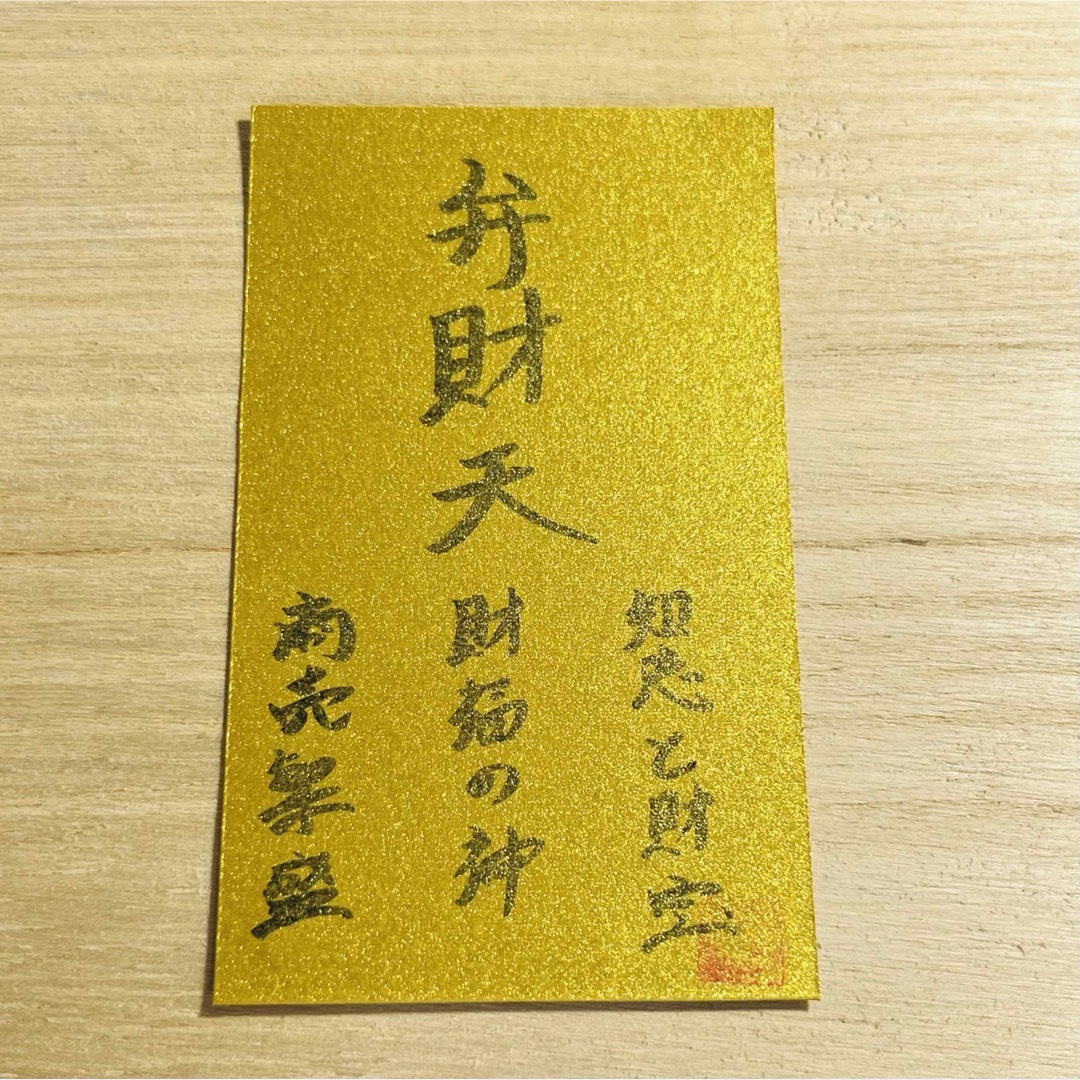 弁財天
知恵と財宝
財福の神
商売繁盛